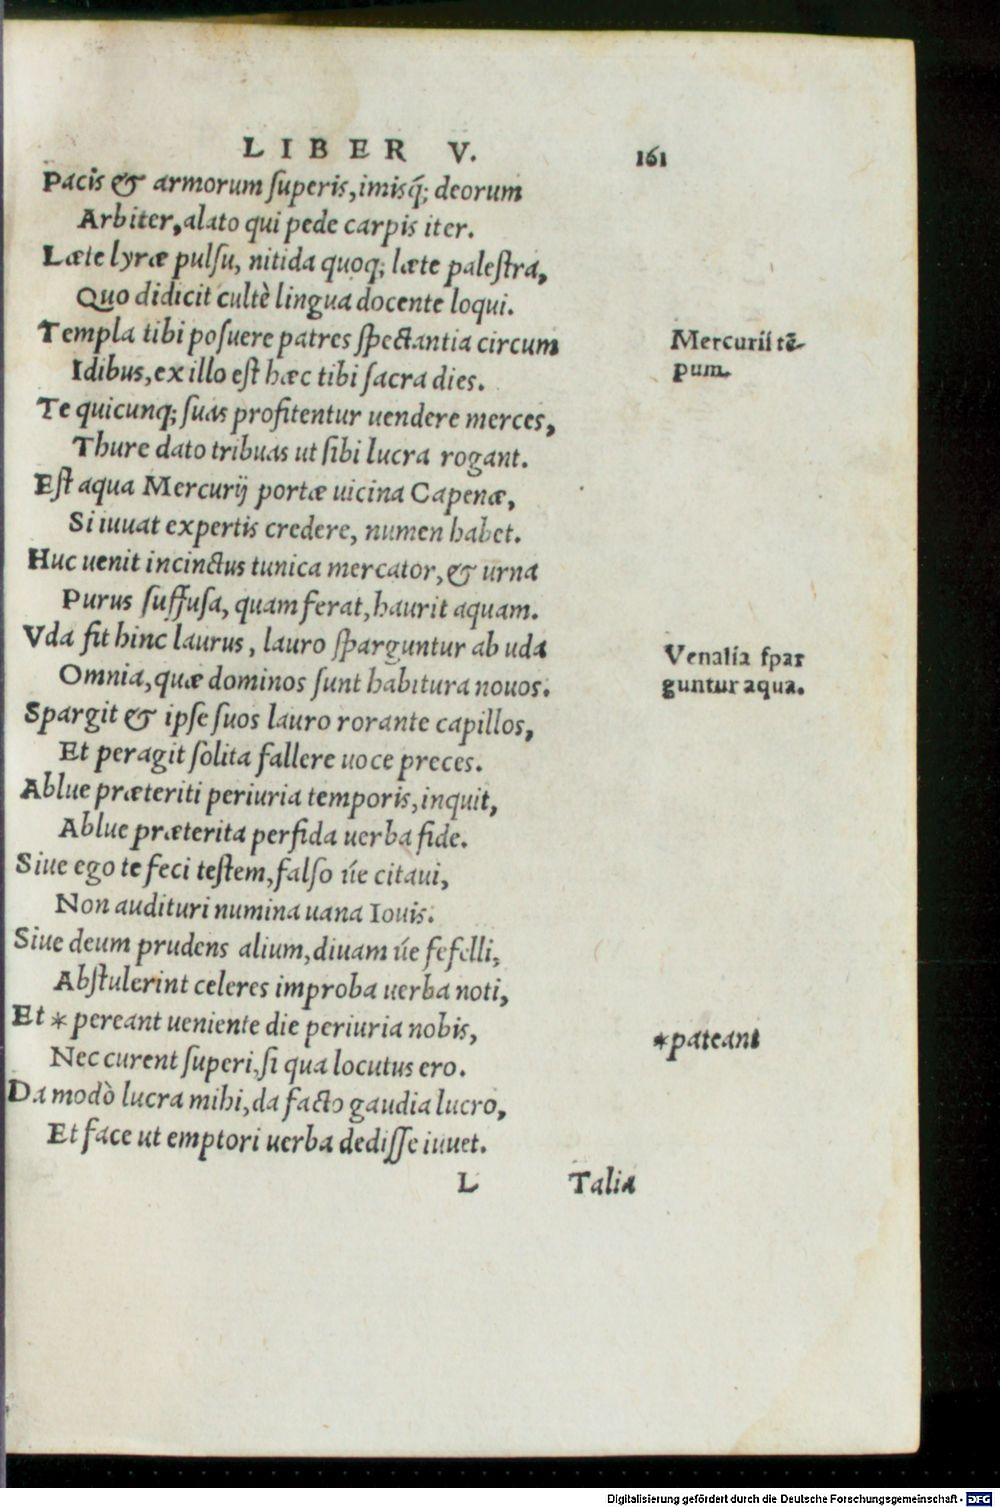 LIBER V. 161
Pacis & armorum ſuperis, imisq́; deorum
Arbiter, alato qui pede carpis iter.
Læte lyræ pulſu, nitida quoq; læte paleſtra,
Quo didicit cultè lingua docente loqui.
Templa tibi poſuere patres ſpectantia circum
Mercurii tē-
pum.
Idibus, ex illo eſt hæc tibi ſacra dies.
Te quicunq; ſuas profitentur uendere merces,
Thure dato tribuas ut ſibi lucra rogant.
Eſt aqua Mercurij portæ uicina Capenæ,
Si iuuat expertis credere, numen habet.
Huc uenit incinctus tunica mercator, & urna
Purus ſuffuſa, quam ferat, haurit aquam.
Vda fit hinc laurus, lauro ſparguntur ab uda
Venalia ſpar
guntur aqua.
Omnia, quæ dominos ſunt habitura nouos.
Spargit & ipſe ſuos lauro rorante capillos,
Et peragit ſolita fallere uoce preces.
Ablue præteriti periuria temporis, inquit,
Ablue præterita perfida uerba fide.
Siue ego te feci teſtem, falſo úe citaui,
Non audituri numina uana Iouis.
Siue deum prudens alium, diuam úe fefelli,
Abſtulerint celeres improba uerba noti,
Et * pereant ueniente die periuria nobis,
*pateant
Nec curent ſuperi, ſi qua locutus ero.
Da modò lucra mihi, da facto gaudia lucro,
Et face ut emptori uerba dediſſe iuuet.
L Talia
Digitalisierung gefördert durch die Deutsche Forschungsgemeinschaft - DFG